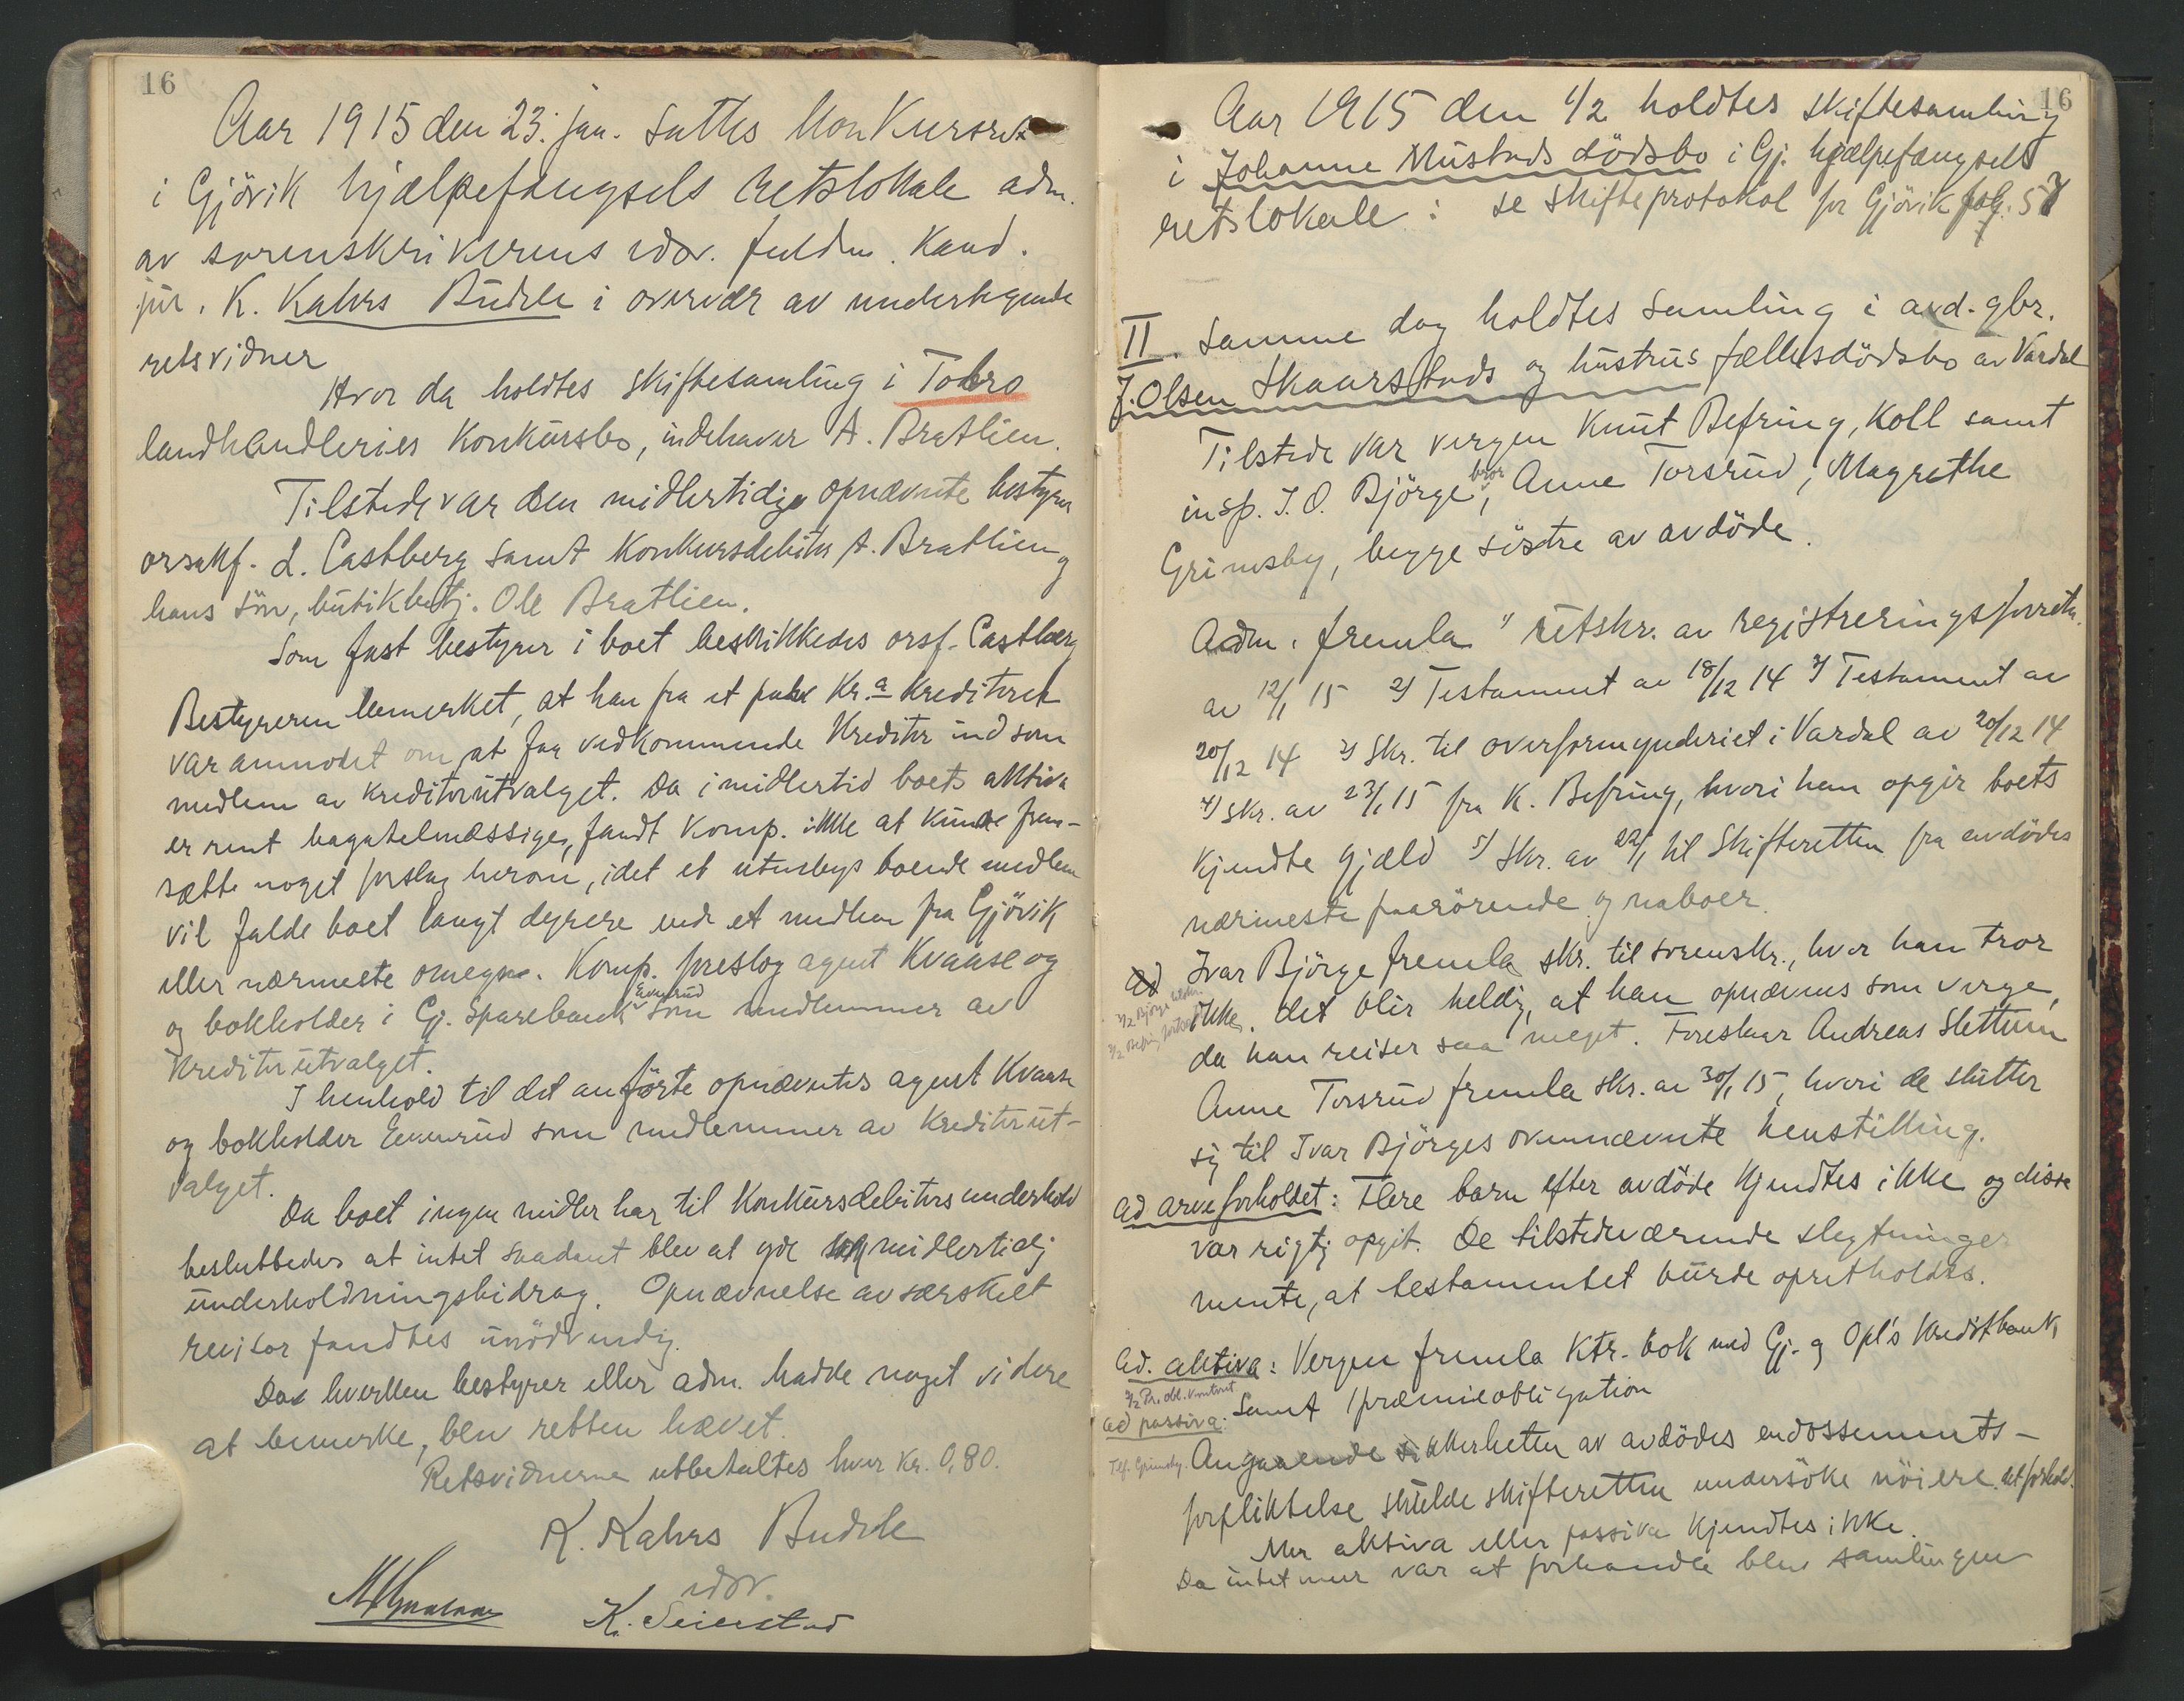 16
Aar 1915 den 23. jan. sattes Konkursret
i Gjövik hjælpefængsels retslokale adm.
av sorenskriverens edsv. fuldm. Kand.
jur. K. Kahrs Budde i overvær av undertegnede
retsvidner
Hvor da holdtes skiftesamling i Tobro
landhandleries Konkursbo, indehaver A. Bratlien.
Tilstede var den midlertidige opnævnte bestyrer
orsakf. L. Castberg samt Konkursdebitor A. Bratlien og
hans sön, butikbetj. Ole Bratlien.
Som fast bestyrer i boet beskikkedes orsf. Castberg
Bestyreren bemerket, at han fra et par Kr.a Kreditorer
var anmodet om at faa vedkommende Kreditor ind som
medlem av kreditorutvalget. Da imidlertid boets aktiva
er rent bagatelmæssige, fandt Komp. ikke at kunde frem-
sætte noget forslag herom, idet et utenbys boende medlem
vil falde boet langt dyrere end et medlem fra Gjövik
eller nærmeste omegn. Komp. foreslog agent Kvaase og
og bokholder i Gj. Sparebank Evenrud som medlemmer av
Kreditorutvalget.
I henhold til det anförte opnævntes agent Kvaase
og bokholder Evenrud som medlemmer av Kreditorut-
valget.
Da boet ingen midler har til Konkursdebitors underhold
besluttedes at intet saadant blev at yde midlertidig
underholdningsbidrag. Opnævnelse av særskilt
revisor fandtes unödvendig.
Da hverken bestyrer eller adm. hadde noget videre
at bemerke, blev retten hævet.
Retsvidnerne utbetaltes hver Kr. 0,80.
K. Kahrs Budde
edsv.
K. Seierstad
16
Aar 1915 den 1/2 holdtes skiftesamling
i Johanne Mustads dödsbo i Gj. hjælpefængsels
retslokale: se skifteprotokol for Gjövik fol. 57
II. Samme dag holdtes samling i avd. gbr.
J. Olsen Skaarstads og hustrus fællesdödsbo av Vardal
Tilstede var vergen Knut Befring, Koll samt
insp. I. O. Björge, bror, Anne Torsrud, Magrethe
Grimsby, begge söstre av avdöde.
Adm. fremla 1) utskr. av registreringsforretn.
av 12/1 15 2) Testament av 18/12 14 3) Testament av
20/12 14 3) Skr. til overformynderiet i Vardal av 20/12 14
4) Skr. av 23/1 15 fra K. Befring, hvori han opgir boets
kjendte gjæld 5) Skr. av 22/1 til Skifteretten fra avdödes
nærmeste paarörende og naboer.
ad Ivar Björge fremla skr. til sorenskr., hvor han tror
ikke det blir heldig, at han opnævnes som verge,
da han reiser saa meget. Foreslaar Andreas Slettum
Anne Torsrud fremla skr. av 30/1 15, hvori de slutter
sig til Ivar Björges ovennævnte henstilling.
ad arveforholdet: Flere barn efter avdöde kjendtes ikke og disse
var rigtig opgit. De tilstedeværende slegtninger
mente, at testamentet burde opretholdes.
Ad. aktiva: Vergen fremla Ktr.-bok med Gj. og Opl's Kreditbank,
samt 1 præmieobligation
ad passiva.
Tlf. Grimsby. Angaaende sikkerheten av avdödes endossements-
forpliktelse skulde skifteretten undersöke nöiere det forhold.
Mer aktiva eller passiva kjendtes ikke.
Da intet mer var at forhandle blev samlingen